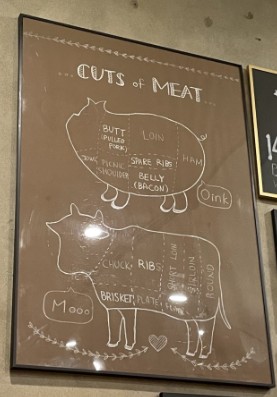 CUTS of MEAT
BUTT
(PULLED
PORK)
LOIN
HAM
PICNIC
SHOULDER
SPARE RIBS
BELLY
(BACON)
Oink
CHUCK
RIBS
SHORT LOIN
SIRLOIN
ROUND
BRISKET
PLATE
Mooo
14